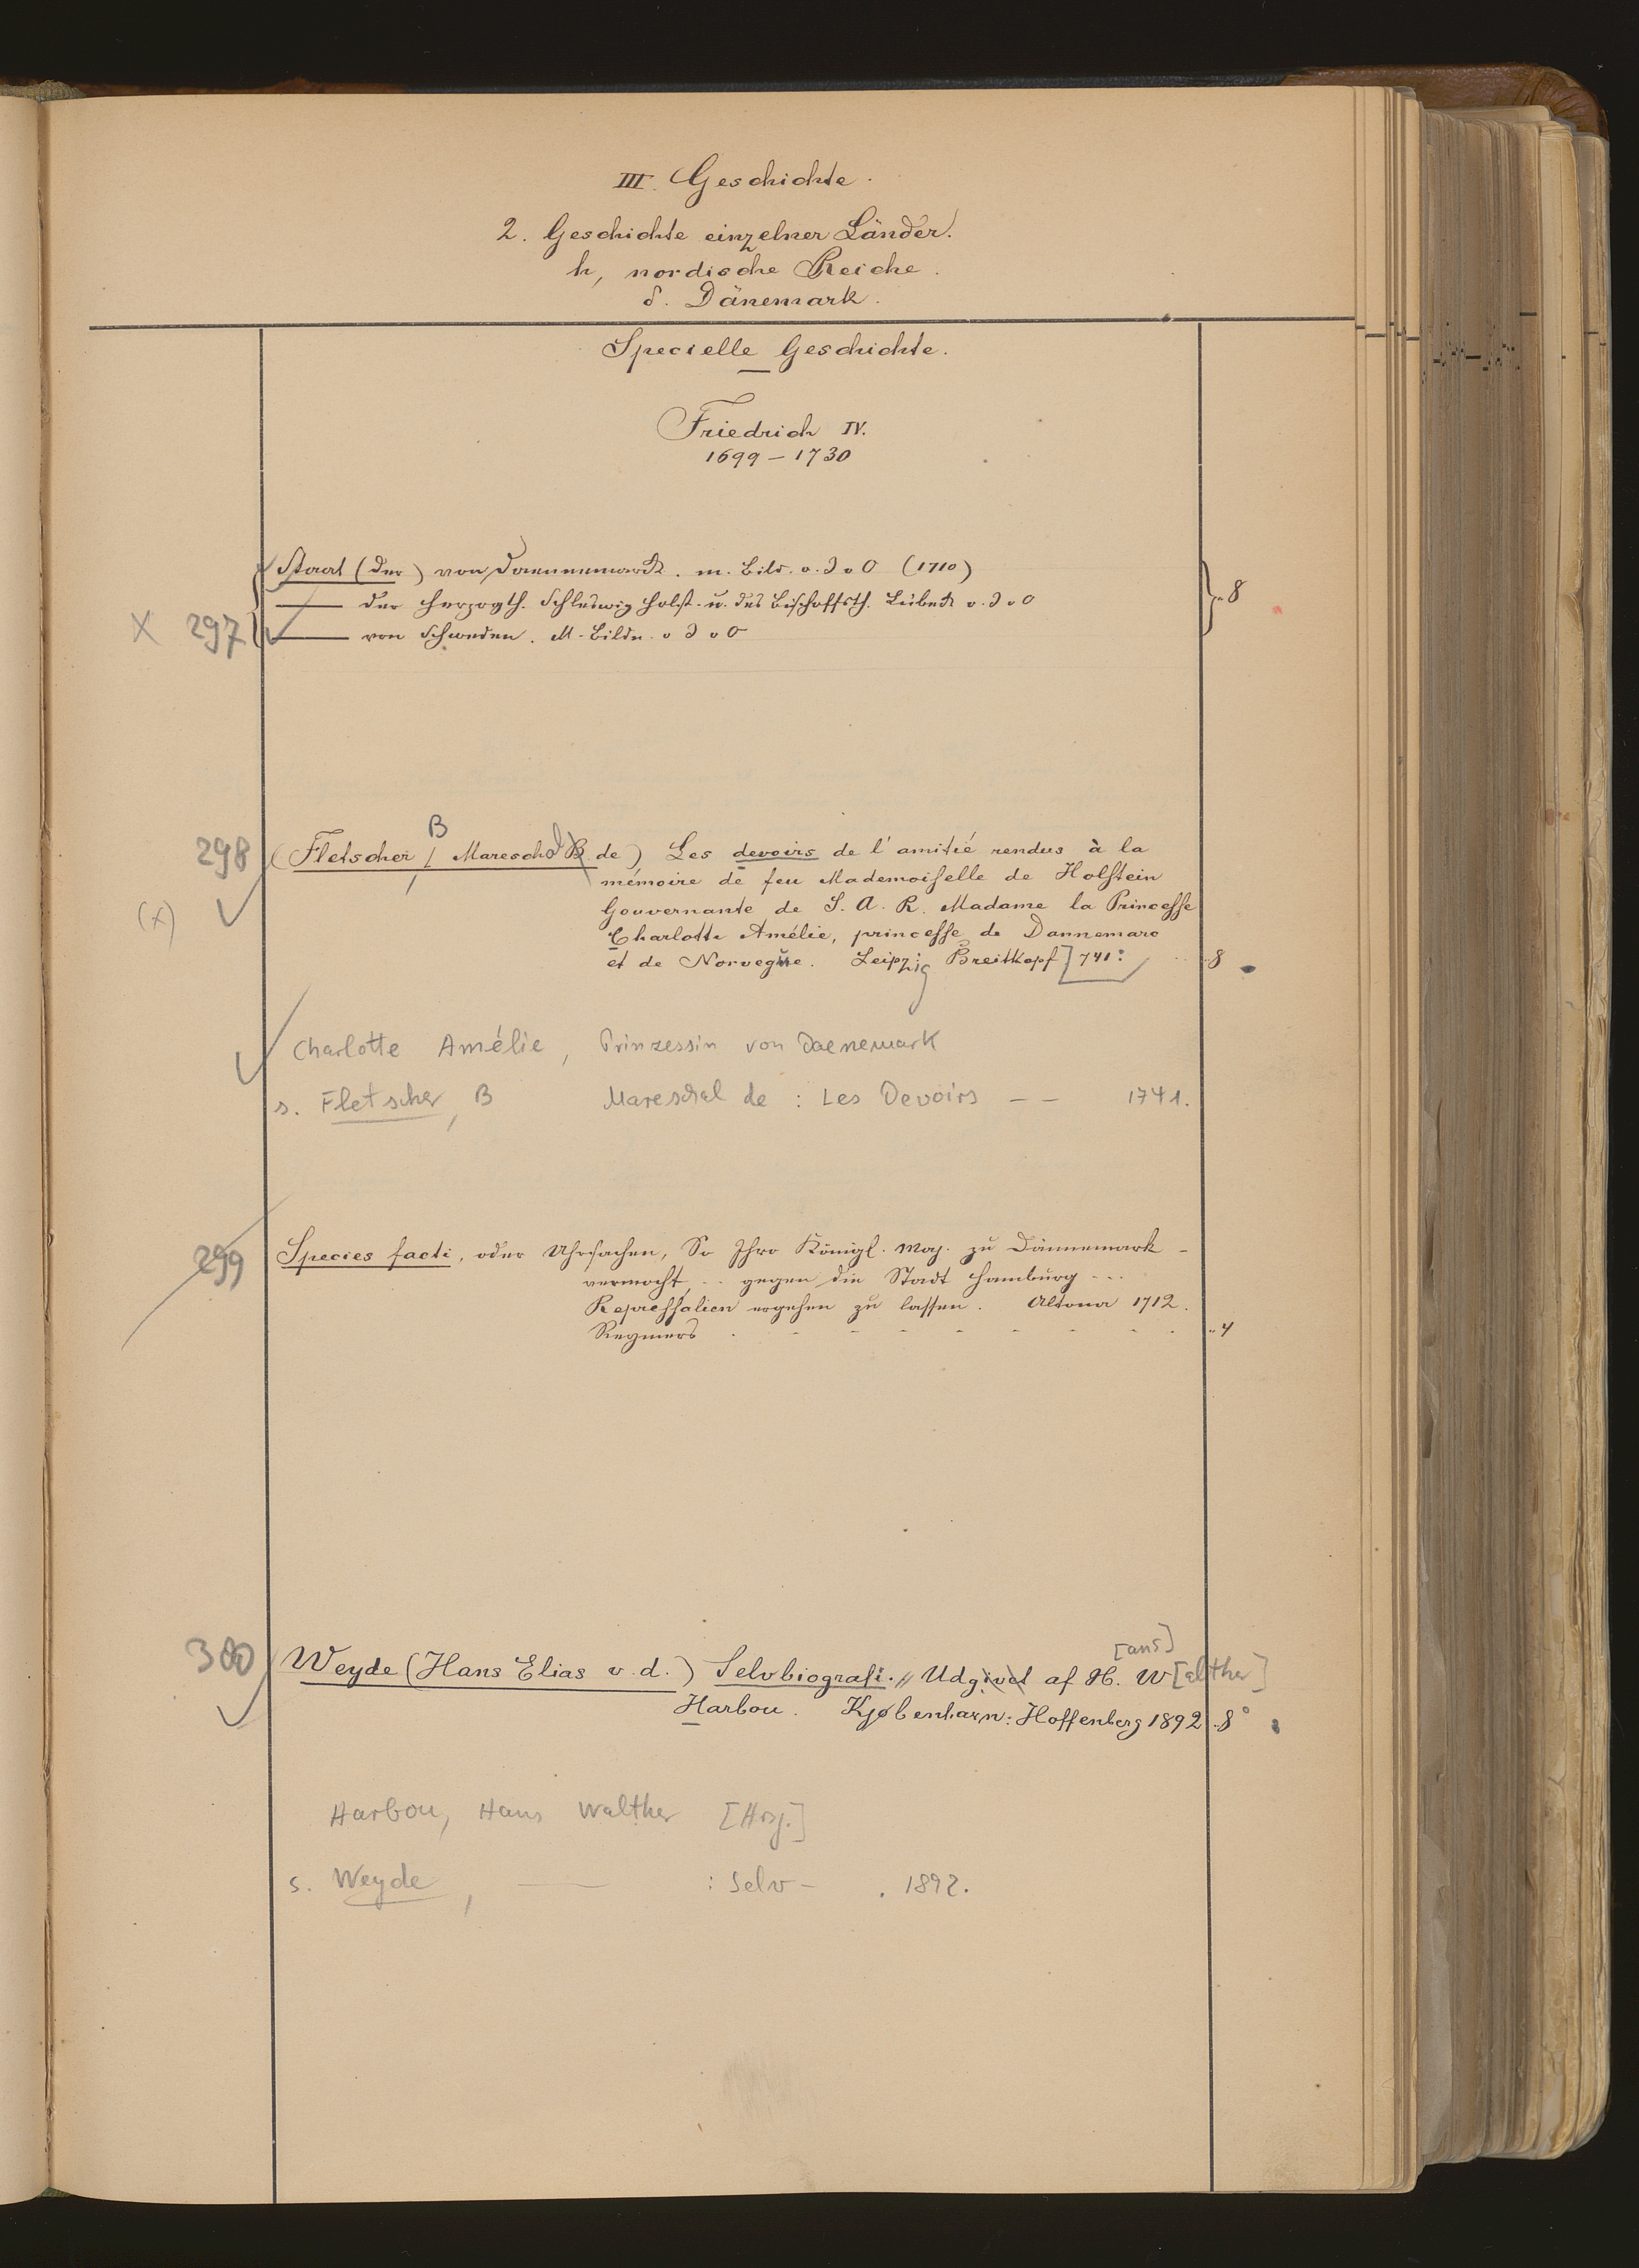 III. Geschichte.
2. Geschichte einzelner Länder.
h, nordische Reiche.
δ. Dänemark.
Specielle Geschichte.
Friedrich IV.
1699 – 1730
Staat (der) von Daennemarck. m. Bild. o. J. o O (1710)
—— der Herzogth. Schleswig Holst. u. des Bischoffsth. Lübeck o. J. o O } 8
X 297 —— von Schweden. M. Bildn. o J o O
B
298 (Fletscher, Mareschal B de) Les devoirs de l'amitié rendus à la
mémoire de feu Mademoiselle de Holstein
(x) Gouvernante de S. A. R. Madame la Princesse
Charlotte Amélie, princesse de Dannemarc
et de Norvegue. Leipzig Breitkopf 741: 8
Charlotte Amélie, Prinzessin von Daenemark
s. Fletscher, B Mareschal de : Les Devoirs – – 1741.
299 Species facti, oder Uhrsachen, So Ihro Königl. Maj. zu Dännemark –
vermocht, .. gegen die Stadt Hamburg ...
Repressalien ergehen zu lassen. Altona 1712.
Reymers . . . . . . . . . 4
[ans]
300 Weyde (Hans Elias v. d.) Selvbiografi. // Udgivet af H. W[alther]
Harbou. Kjøbenhavn: Hoffenberg 1892 . 8°
Harbou, Hans Walther [Hrsg.]
s. Weyde, —— : Selv – . 1892.